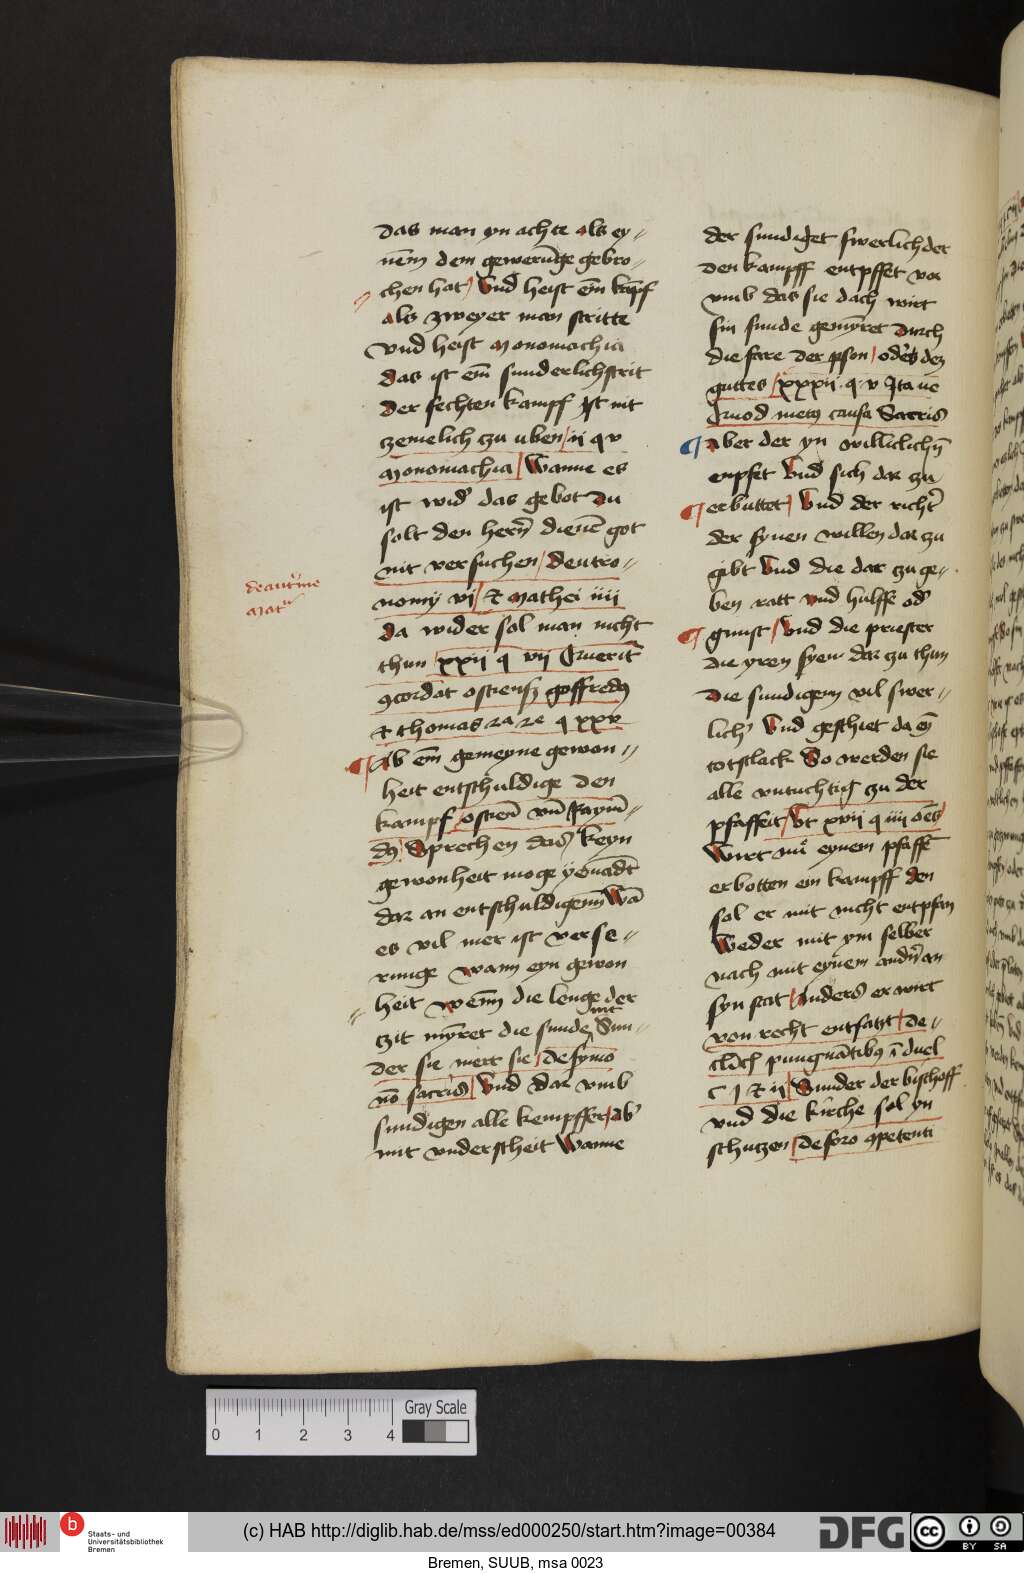 das man yn achte als ey//
nem dem gewerūge gebro//
chen hat / Vnd heist em kāpf
als zweyer man stritte
vnd heist Monomachia
das ist em sunderlich strit
der fechten kampf Jst nit
zemelich zu uben / ii q v
Monomachia / Wanne es
ist wid' das gebot Du
solt den hern dienē got
nit versuchen / deutro//
nomij vi / et Mathei iiii
da wider sol man nicht
thun / xxii q vii
ꝯcordat ostiensz goffredꝯ
et thomas 2a 2e q xxv
Ab em gemeyne gewon//
heit entschuldige den
kampf / ostien vn Raym//
dꝯ Sprechen das keyn
gewonheit moge
dar an entschuldigenn Wā
es vil mer ist verse//
runge wann eyn gewon
heit Wenn die lenge der
zit myret die sunde nit Sun//
der sie mert sie / de symo
nō satris / Vnd dar vmb
sundigen alle kempffer / ab'
mit vnderscheit Wanne
de autine
Mat
der sundiget swerlich der
den kampff entpffet vor
vmb das sie dach wirt
sin sunde gemyret durch
die fare der pson / oder des
guttes / xxxii q v Jta ne
Quod metꝯ causa Satris
Aber der yn williclichn
enpfet Vnd sich dar zu
erbuttet / Vnd der richt'
der synen willen dar zu
gibt Vnd die dar zu ge//
ben ratt vnd hulffe od'
gunst / Vnd die priester
die yren syen dar zu thun
die sundigenn vil swer//
lich' Vnd geschiet da ey
totslack So werden sie
alle vntuchtig zu der
pfaffeit / Vt xvii q iiii oēs
Wirt nu eynem pfaffē
erbotten ein kampff den
sol er mit nicht entpfan
Weder mit ym selber
nach mit eynem andn an
syn stat / Anders er wirt
von recht entsatzt / De//
cl'ich pungnātibꝯ ī duel
c j et ij / Sunder der bischoff
vnd die kirche sol yn
schutzen / De foro ꝯpetenti
0 1 2 3 4 Gray Scale
b Staats- und
Universitätsbibliothek
Bremen
(c) HAB http://diglib.hab.de/mss/ed000250/start.htm?image=00384
DFG cc BY SA
Bremen, SUUB, msa 0023